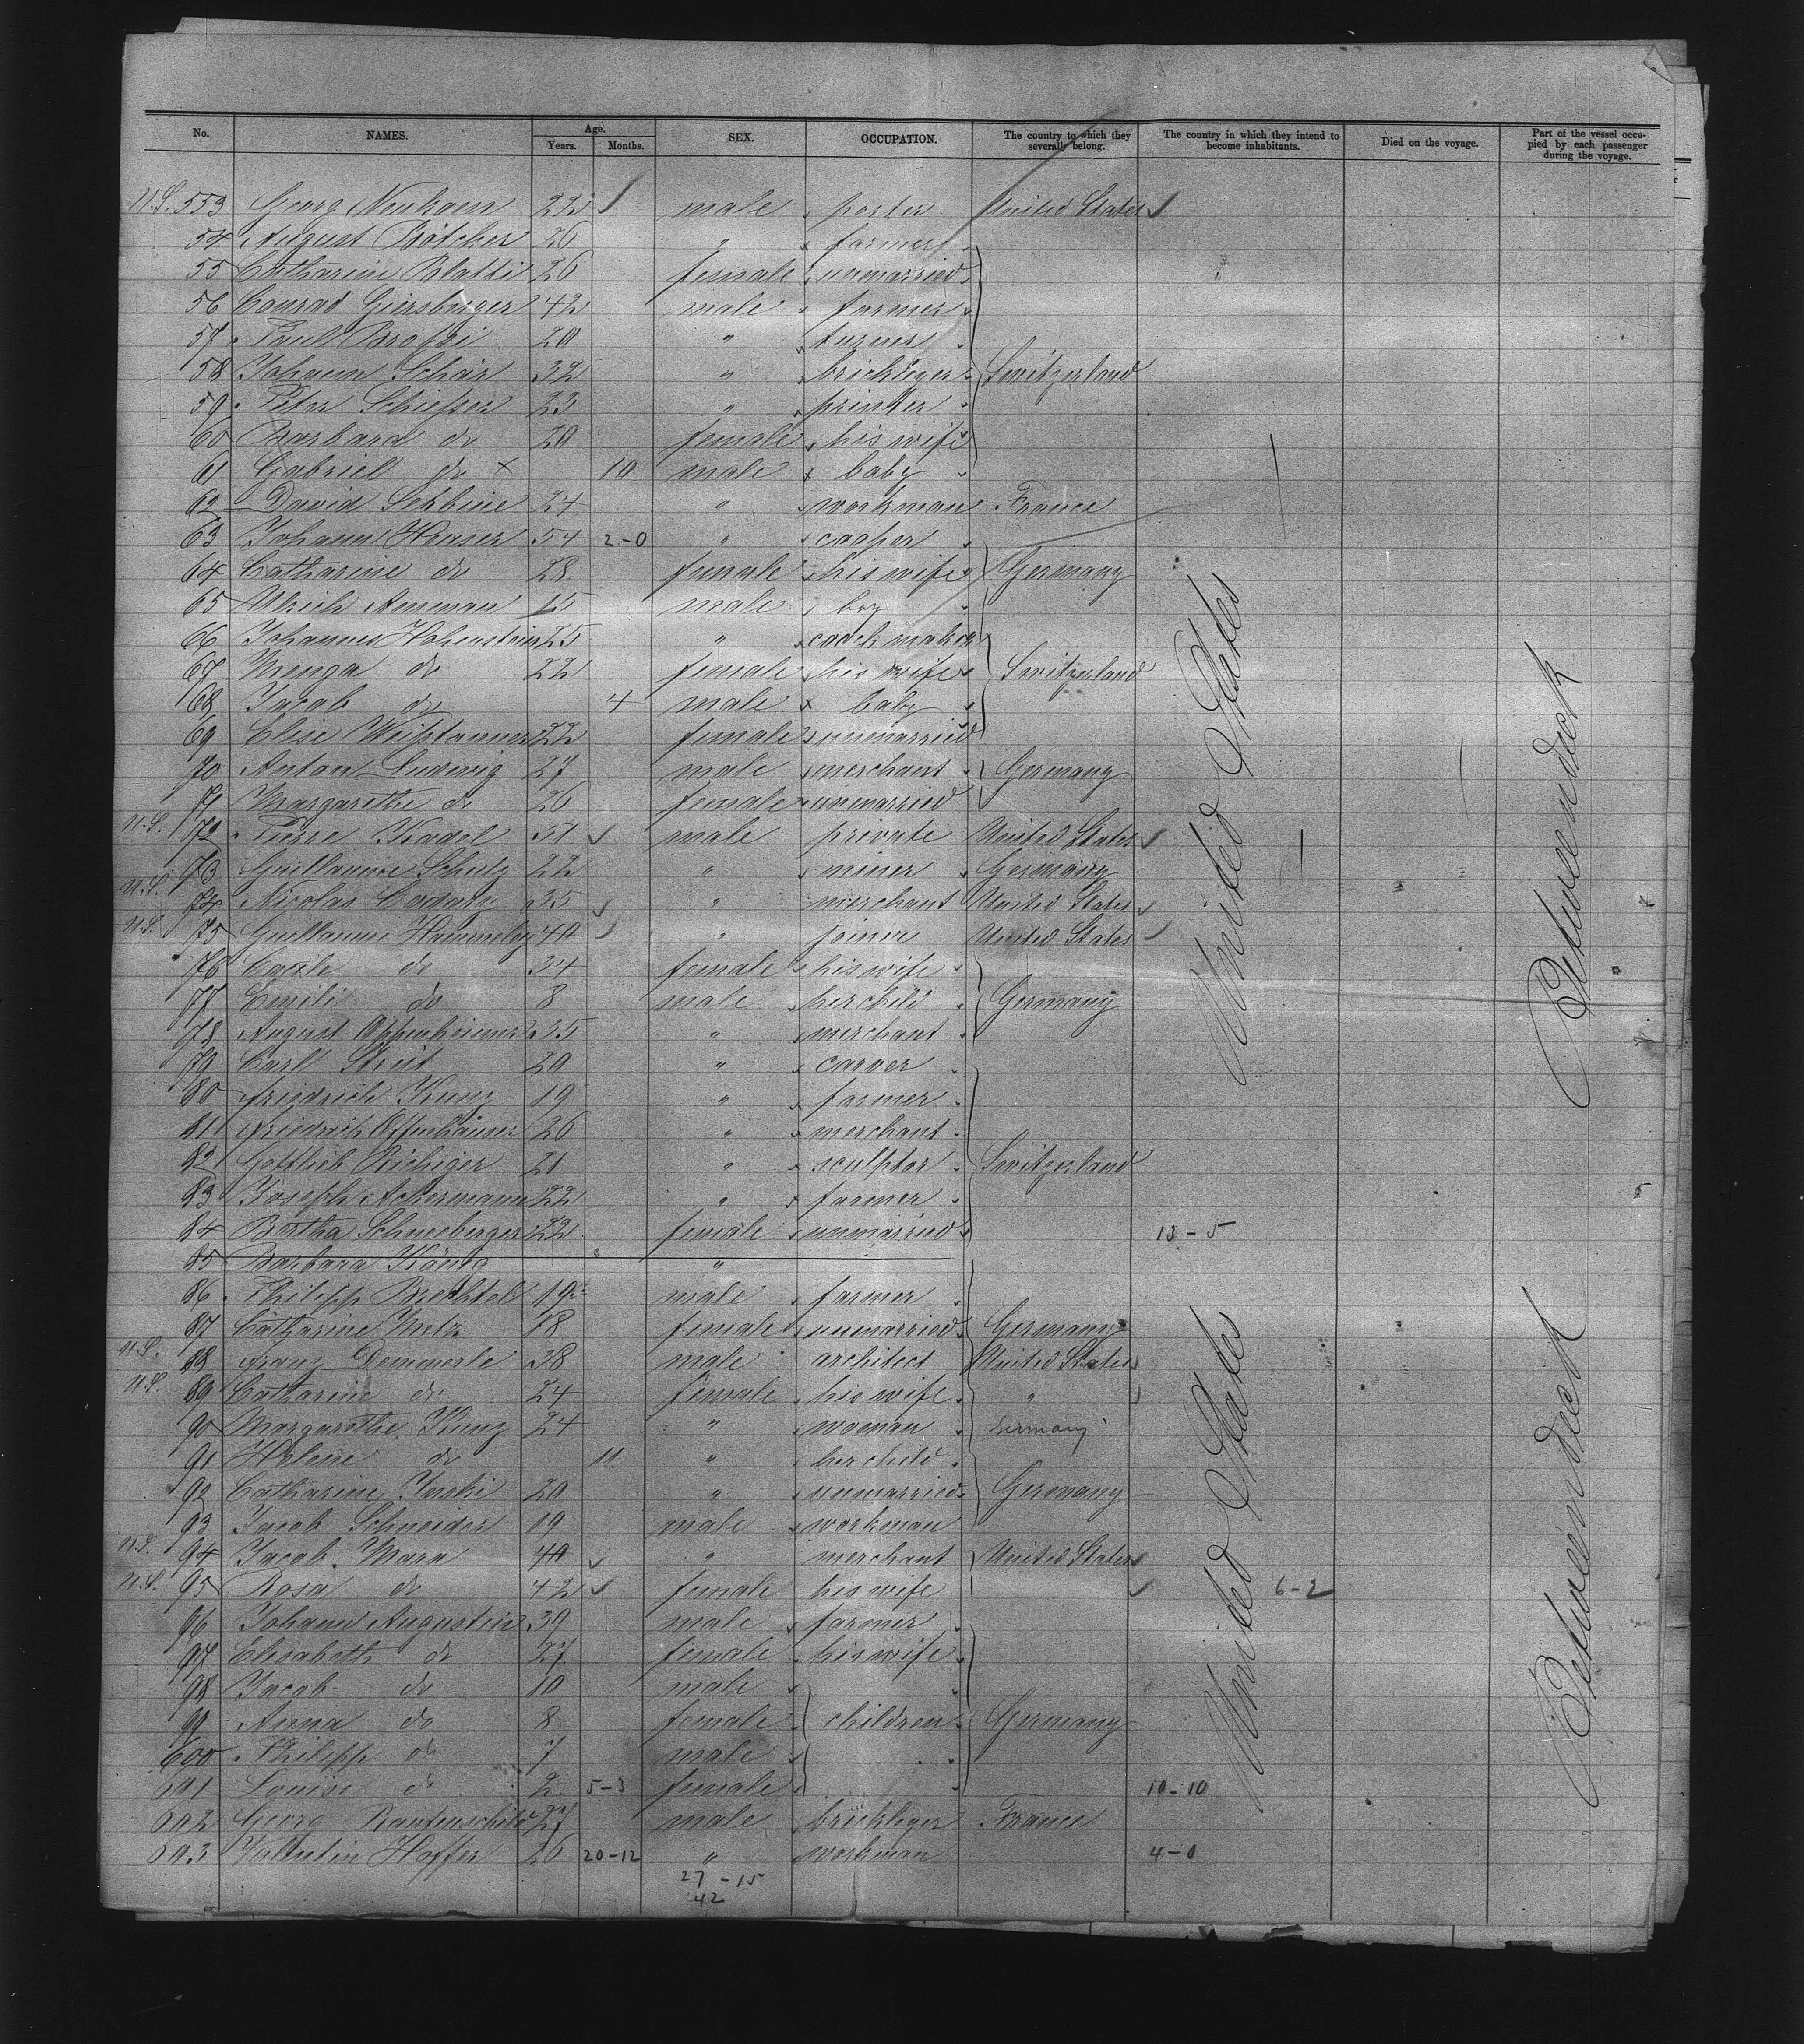 No. NAMES. Age. Years. Months. SEX. OCCUPATION. The country to which they severally belong. The country in which they intend to become inhabitants. Died on the voyage. Part of the vessel occupied by each passenger during the voyage.
U.S. 553 Georg 22 male porter United States
54 August Bötcher 26 " farmer
55 Catharine Blatti 26 female unmarried
56 Conrad Giersberger 42 male farmer
57 Paul 20 " turner
58 Johann Schär 32 " brickleger Switzerland
59 Peter Schiesser 23 " printer
60 Barbara do 20 female his wife
61 Gabriel do x 10 male x baby
62 David 24 " workman France
63 Johann Heuser 54 2-0 " cooper
64 Catharine do 28 female his wife Germany
65 Ulrich Amman 15 male boy
66 Johannes Hohenstein 25 " coack maker
67 Menga do 22 female his wife Switzerland
68 Jacob do 4 male x baby
69 Elise 22 female unmarried
70 Anton Ludwig 27 male merchant Germany
71 Margarethe do 26 female unmarried
U.S. 72 Pierre Kadel 51 male private United States
73 Guillaume Schulz 22 " miner Germany
U.S. 74 Nicolas 35 " merchant United States
U.S. 75 Guillaume 40 " joiner United States
76 do 34 female his wife
77 Emili do 8 male her child Germany
78 August Oppenheimer 35 " merchant
79 Carl Streit 20 " carver
80 Friedrich Kunz 19 " farmer
81 Friedrich Offenhäuser 26 " merchant
82 Gottlieb Richiger 21 " sculptor Switzerland
83 Joseph Ackermann 22 " farmer
84 Bertha Schneeberger 22 female unmarried 13-5
85 Barbara König "
86 Philipp Brechtel 19 male farmer
87 Catharine Metz 18 female unmarried Germany
U.S. 88 Franz Demmerle 38 male architect United States
U.S. 89 Catharine do 24 female his wife "
90 Margarethe Kunz 24 " woman Germany
91 Helene do 11 " her child
92 Catharine 20 " unmarried Germany
93 Jacob Schneider 19 male workman
U.S. 94 Jacob Marx 40 " merchant United States
U.S. 95 Rosa do 42 female his wife 6-2
96 Johann Augustin 39 male farmer
97 Elisabeth do 27 female his wife
98 Jacob do 10 male
99 Anna do 8 female children Germany
600 Philipp do 7 male
601 Louise do 2 5-3 female 10-10
602 Georg Rautenschild 27 male brickleger France
603 Valentin Hoffer 26 20-12 " workman 4-0
27-15
42
United States
Between deck
United States
Between deck